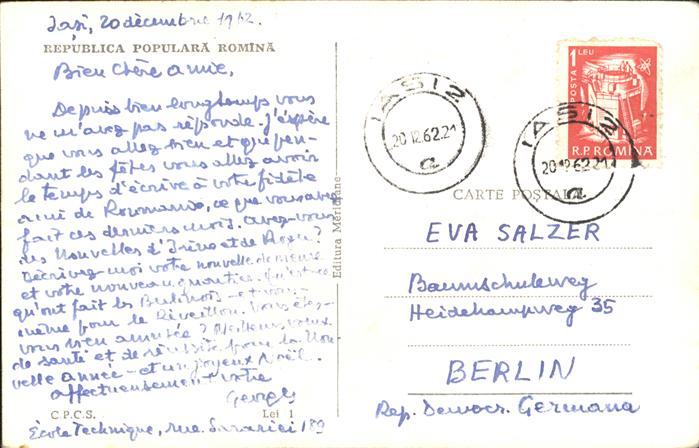 Iași, 20 décembre 1962.
REPUBLICA POPULARĂ ROMÎNĂ
Bien Chère amie,
Depuis bien longtemps vous
ne m'avez pas répondu. J'espère
que vous allez bien et que pen-
dant les fêtes vous allez avoir
le temps d'écrire à votre fidèle
ami de Roumanie, ce que vous avez
fait ces derniers mois. Avez-vous
des nouvelles d'Irène et de
Décrivez-moi votre nouvelle demeure
et votre nouveau quartier. Qu'est-ce
qu'ont fait les Berlinois - et vous-
même pour le Réveillon. Vous êtes-
vous bien amusée? Meilleurs voeux
de santé et de réussite pour la Nou-
velle année - et un joyeux Noël.
Affectueusement votre
Georges
C.P.C.S.
Lei 1
École Technique, rue Sărăriei 189
Editura Meridiane
1 LEU
POSTA
R.P. ROMINA
IAȘI 2
20.12.62.21
a
IAȘI 2
20.12.62.21
a
CARTE POȘTALĂ
EVA SALZER
Baumschuleweg
Heidekampweg 35
BERLIN
Rep. Democr. Germana